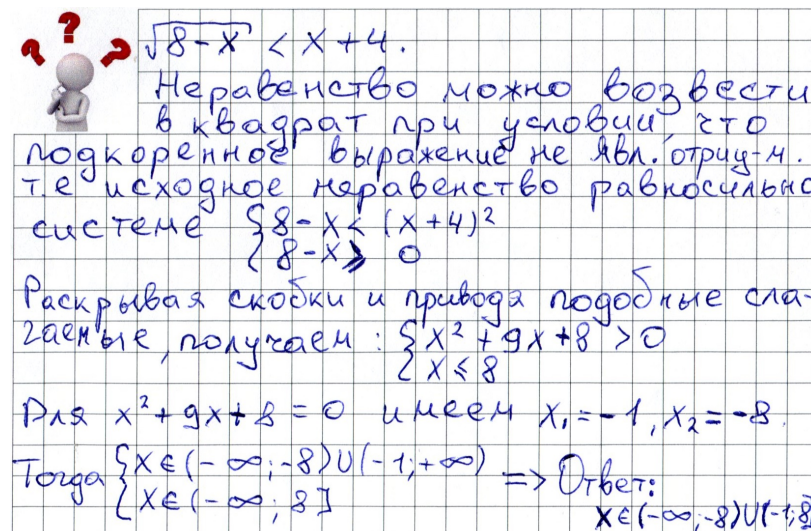 √8-x < x+4.
Неравенство можно возвести
в квадрат при условии, что
подкоренное выражение не явл. отриц-м.
т.е исходное неравенство равносильно
системе { 8-x < (x+4)²
{ 8-x ⩾ 0
Раскрывая скобки и приводя подобные сла-
гаемые, получаем: { x²+9x+8 >0
{ x ⩽ 8
Для x²+9x+8=0 имеем x₁=-1, x₂=-8.
Тогда { x∈(-∞;-8)∪(-1;+∞)
{ x∈(-∞; 8] => Ответ:
x∈(-∞;-8)∪(-1;8]